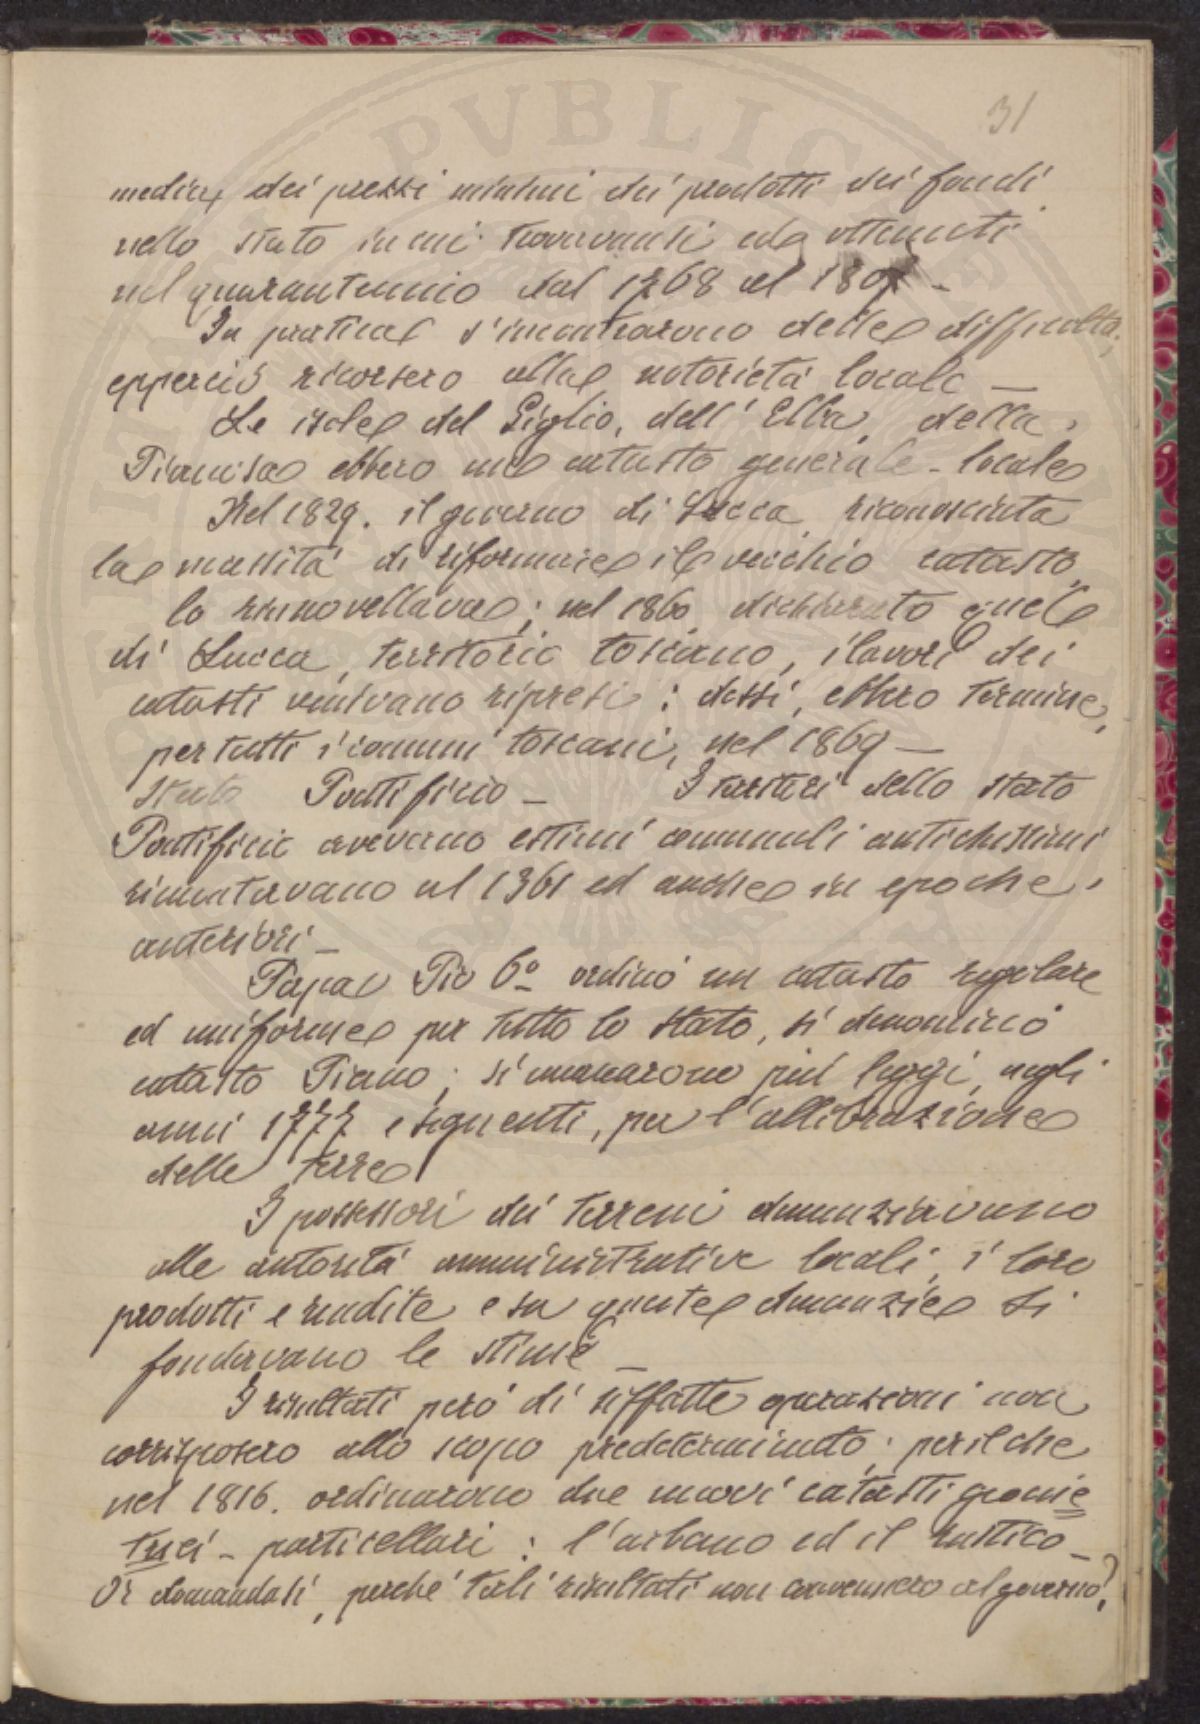 31
media dei prezzi minimi dei prodotti dei fondi
nello stato in cui trovavansi ed ottenuti
nel quarantennio dal 1768 al 1807 –
In pratica s'incontrarono delle difficoltà,
epperciò ricorsero alla notorietà locale –
Le isole del Giglio, dell'Elba, della
Pianosa ebbero un catasto generale – locale
Nel 1829. il governo di Lucca riconosciuta
la necessità di riformare il vecchio catasto,
lo rinnovellava; nel 1860, dichiarato quel
di Lucca, territorio toscano, i lavori dei
catasti venivano ripresi: dessi, ebbero termine,
per tutti i comuni toscani, nel 1869 –
Stato Pontificio – I territori dello stato
Pontificio avevano estimi comunali antichissimi
rimontavano al 1361 ed anche in epoche
anteriori –
Papa Pio 6º ordinò un catasto regolare
ed uniforme per tutto lo stato, si denominò
catasto Piano; si emanarono più leggi, negli
anni 1777 e seguenti, per l'allibrazione
delle terre
I possessori dei terreni denunziavano
alle autorità amministrative locali, i loro
prodotti e rendite e su queste denunzie si
fondavano le stime –
I risultati però di siffatte operazioni non
corrisposero allo scopo predeterminato; per il che
nel 1816. ordinarono due nuovi catasti geome
trici – particellari: l'urbano ed il rustico –
Or domandasi, perchè tali risultati non convennero al governo?
PVBLICAE